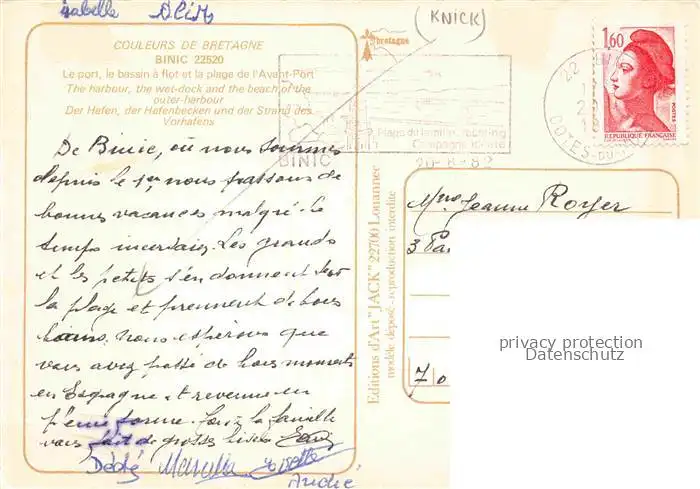 Isabelle
(KNICK)
COULEURS DE BRETAGNE
BINIC 22520
Le port, le bassin à flot et la plage de l'Avant-Port
The harbour, the wet-dock and the beach of the
outer-harbour
Der Hafen, der Hafenbecken und der Strand des
Vorhafens
bretagne
BINIC
1,60
REPUBLIQUE FRANÇAISE
POSTES
22 BINIC
De Binic, où nous sommes
depuis le 1er nous passons de
bonnes vacances malgré le
temps incertain. Les grands
et les petits s'en donnent sur
la plage et prennent de bons
bains. Nous espérons que
vous avez passé de bons moments
en Espagne et revenue en
pleine forme. Toute la famille
vous fait de grosses bises
Dédé Marcelle Josette
André
Editions d'Art "JACK" 22700 Louannec
modèle déposé - reproduction interdite
Mme Jeanne Royer
3
7
privacy protection
Datenschutz